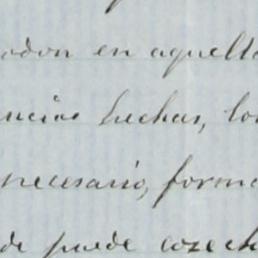 odon en aquell
ncias hechas, lo
necesario, forma
de puede cosech